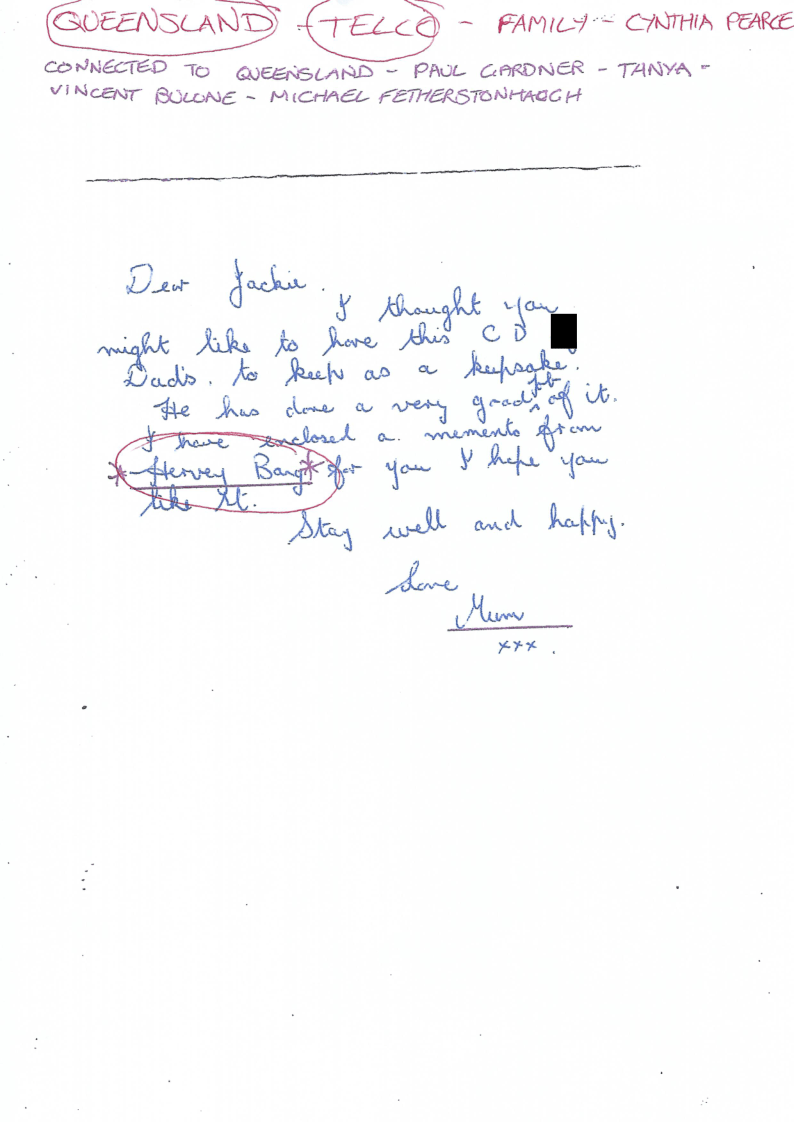 QUEENSLAND - TELCO - FAMILY - CYNTHIA PEARCE
CONNECTED TO QUEENSLAND - PAUL GARDNER - TANYA -
VINCENT BULONE - MICHAEL FETHERSTONHAUGH
Dear Jackie.
I thought you
might like to have this CD
Dad's. to keep as a keepsake.
He has done a very good job of it.
I have enclosed a. memento from
* Hervey Bay * for you I hope you
like it.
Stay well and happy.
Love
Mum
xxx.